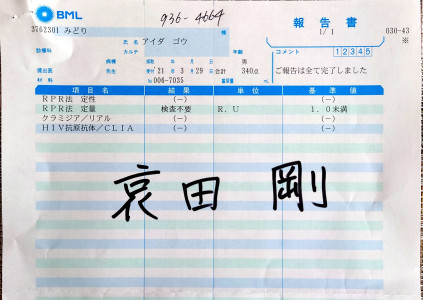 BML
936-4664
報告書
3762301 みどり
様
1/ 1
030-43
氏名 アイダ ゴウ
※
診療科
カルテ
年齢
男
コメント
12345
提出医
病棟
採取 '21 年 3 月 29 日 合計 340点
ご報告は全て完了しました
材料
№ 006-7035
項目名 結果 単位 基準値
RPR法 定性 (−) (−)
RPR法 定量 検査不要 R.U 1.0未満
クラミジア/リアル (−) (−)
HIV抗原抗体/CLIA (−) (−)
哀田 剛